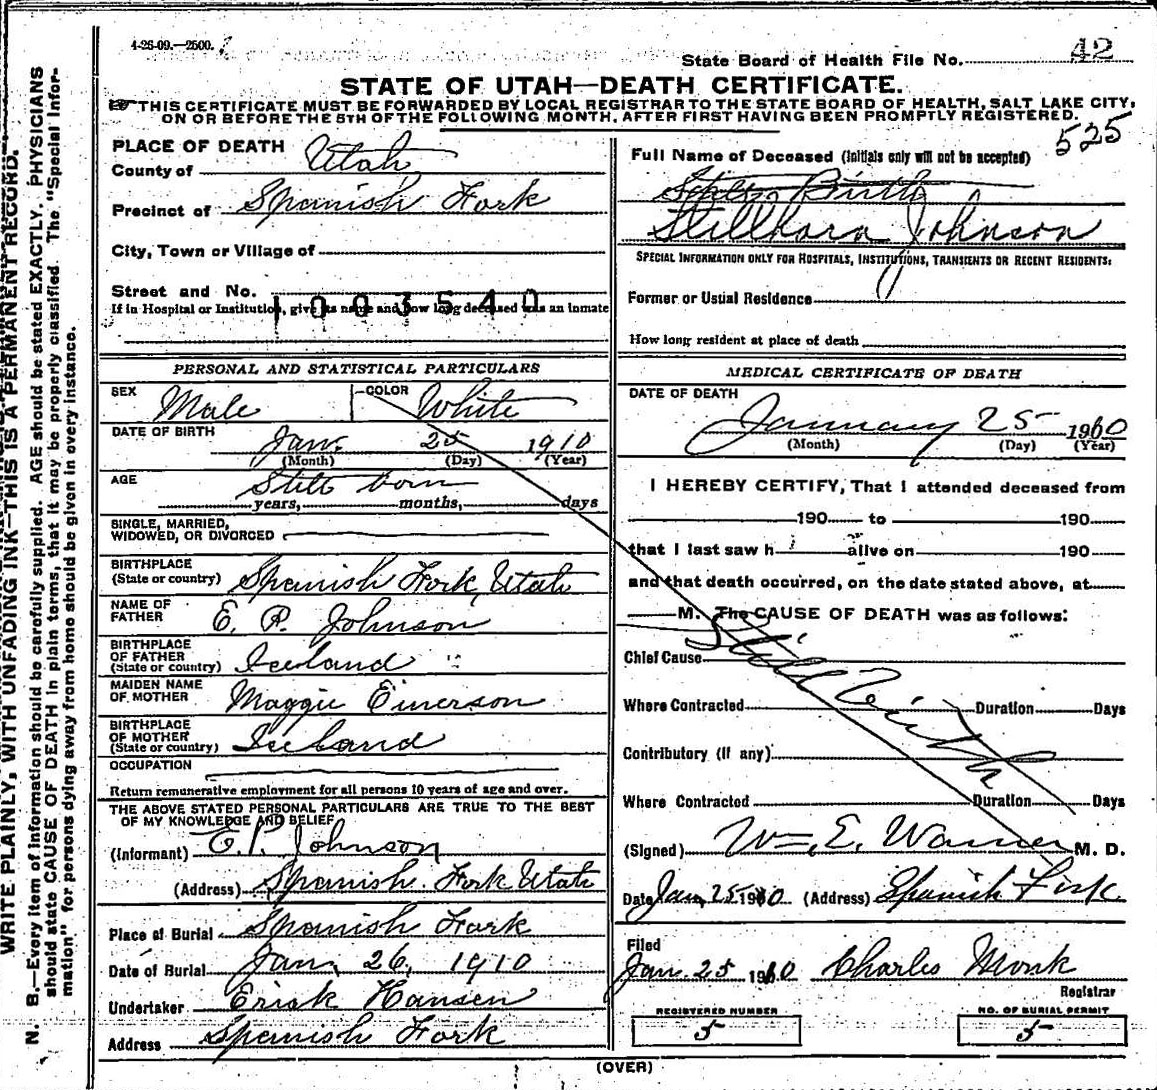 4-26-09.—2500.
State Board of Health File No. 42
STATE OF UTAH—DEATH CERTIFICATE.
THIS CERTIFICATE MUST BE FORWARDED BY LOCAL REGISTRAR TO THE STATE BOARD OF HEALTH, SALT LAKE CITY,
ON OR BEFORE THE 5TH OF THE FOLLOWING MONTH, AFTER FIRST HAVING BEEN PROMPTLY REGISTERED.
525
WRITE PLAINLY, WITH UNFADING INK—THIS IS A PERMANENT RECORD.
N. B.—Every item of information should be carefully supplied. AGE should be stated EXACTLY. PHYSICIANS
should state CAUSE OF DEATH in plain terms, that it may be properly classified. The "Special Infor-
mation" for persons dying away from home should be given in every instance.
PLACE OF DEATH
County of Utah
Precinct of Spanish Fork
City, Town or Village of
Street and No.
1003540
If in Hospital or Institution, give its name and how long deceased was an inmate
PERSONAL AND STATISTICAL PARTICULARS
SEX Male COLOR White
DATE OF BIRTH
Jan. 25 1910
(Month) (Day) (Year)
AGE Still born
years, months, days
SINGLE, MARRIED,
WIDOWED, OR DIVORCED
BIRTHPLACE
(State or country) Spanish Fork, Utah
NAME OF
FATHER E. P. Johnson
BIRTHPLACE
OF FATHER
(State or country) Iceland
MAIDEN NAME
OF MOTHER Maggie Einerson
BIRTHPLACE
OF MOTHER
(State or country) Iceland
OCCUPATION
Return remunerative employment for all persons 10 years of age and over.
THE ABOVE STATED PERSONAL PARTICULARS ARE TRUE TO THE BEST
OF MY KNOWLEDGE AND BELIEF
(Informant) E. P. Johnson
(Address) Spanish Fork Utah
Place of Burial Spanish Fork
Date of Burial Jan, 26, 1910
Undertaker Erisk Hansen
Address Spanish Fork
Full Name of Deceased (Initials only will not be accepted)
Birth
Stillborn Johnson
SPECIAL INFORMATION ONLY FOR HOSPITALS, INSTITUTIONS, TRANSIENTS OR RECENT RESIDENTS:
Former or Usual Residence
How long resident at place of death
MEDICAL CERTIFICATE OF DEATH
DATE OF DEATH
January 25 1910
(Month) (Day) (Year)
I HEREBY CERTIFY, That I attended deceased from
190 to 190
that I last saw h alive on 190
and that death occurred, on the date stated above, at
M. The CAUSE OF DEATH was as follows:
Chief Cause Still Birth
Where Contracted Duration Days
Contributory (if any)
Where Contracted Duration Days
(Signed) Wm. E. Warner M. D.
Date Jan, 25 1910 (Address) Spanish Fork.
Filed
Jan. 25 1910 Charles Monk
Registrar
REGISTERED NUMBER
5
NO. OF BURIAL PERMIT
5
(OVER)